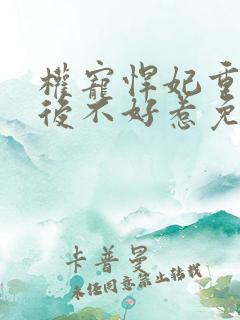 權寵悍妃重
後不好惹免
卡普曼
未經同意禁止轉載